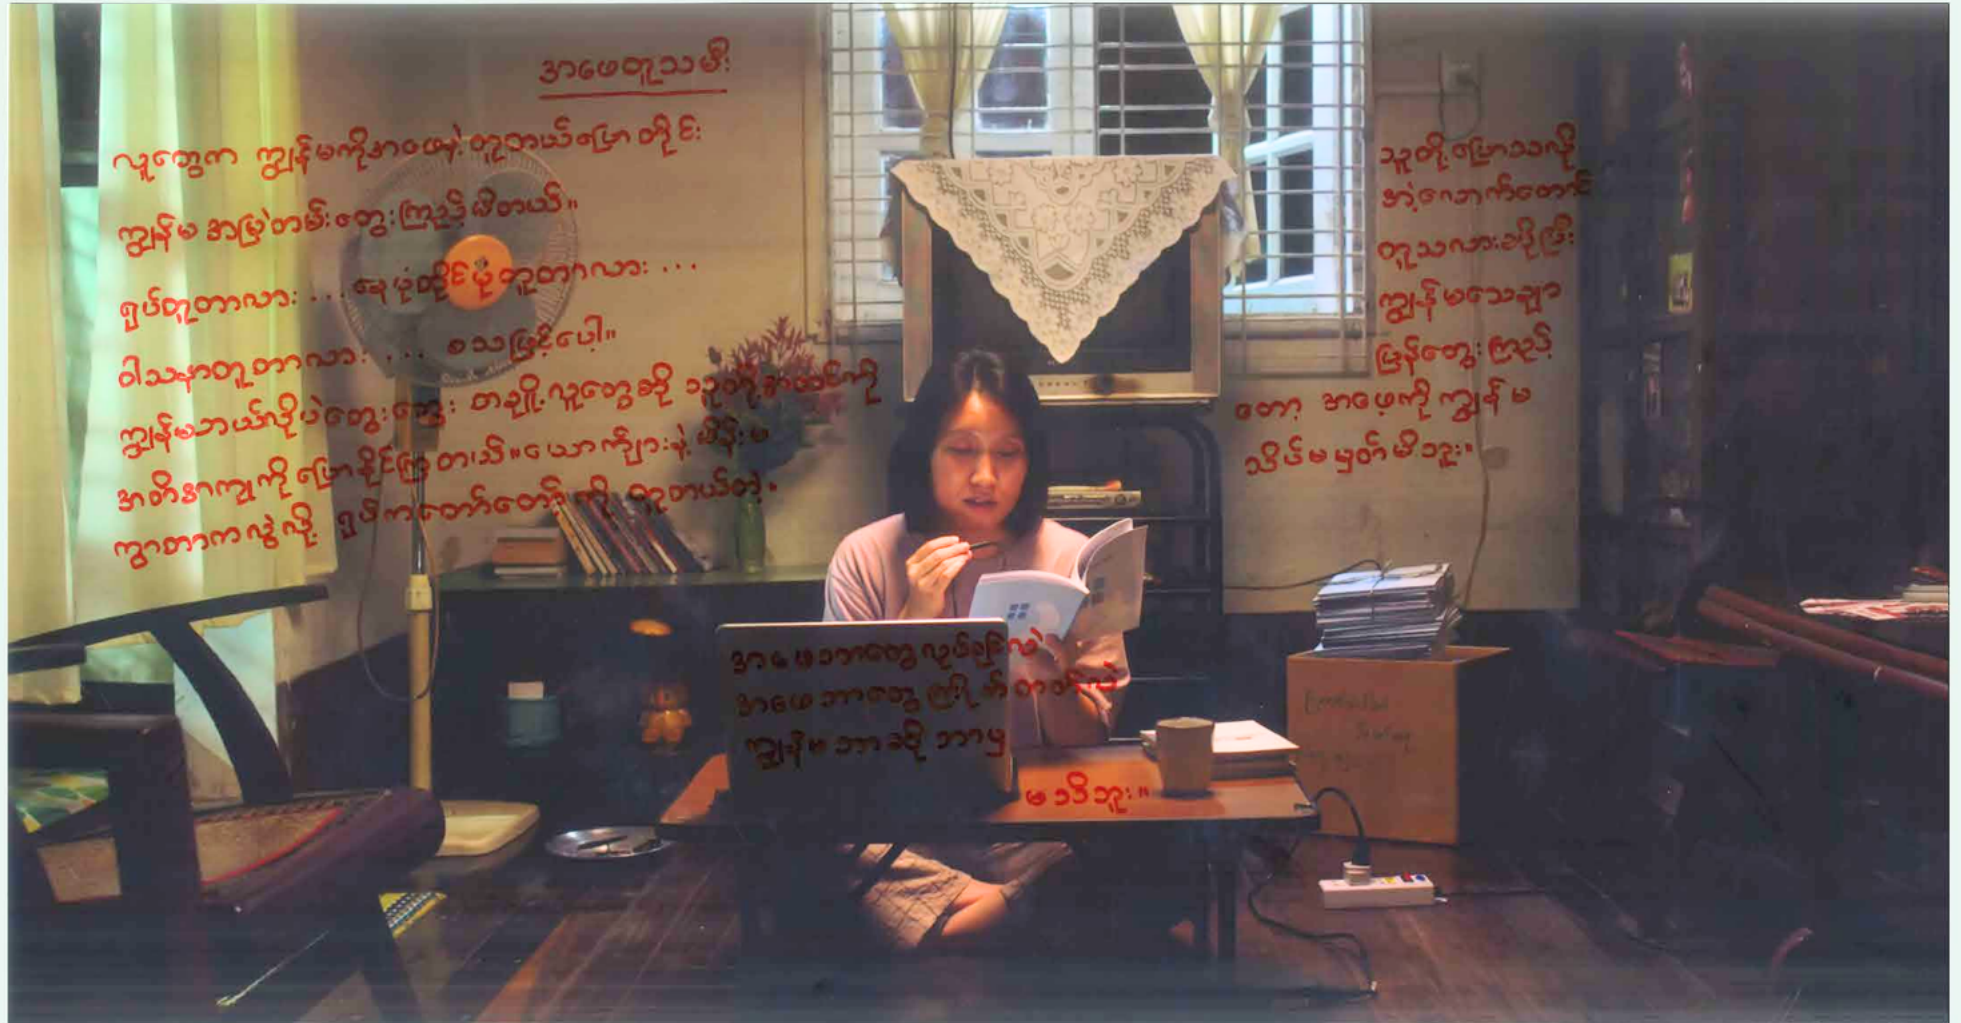 အဖေတူသမီး
လူတွေက ကျွန်မကိုအဖေနဲ့တူတယ်ပြောတိုင်း
ကျွန်မ အမြဲတမ်းတွေးကြည့်မိတယ်။
ရုပ်တူတာလား ... နေပုံထိုင်ပုံတူတာလား ...
ဝါသနာတူတာလား ... စသဖြင့်ပေါ့။
ကျွန်မဘယ်လိုပဲတွေးတွေး တချို့လူတွေဆို သူတို့စာထင်ကို
အတိအကျကို ပြောနိုင်ကြတယ်။ ယောက်ျားနဲ့ မိန်းမ
ကွာတာကလွဲလို့ ရုပ်ကတော်တော့်ကို တူတယ်တဲ့.
သူတို့ပြောသလို
အဲ့လောက်တောင်
တူသလားဆိုပြီး
ကျွန်မသေချာ
ပြန်တွေးကြည့်
တော့ အဖေ့ကို ကျွန်မ
သိပ်မမှတ်မိဘူး။
အဖေဘာတွေလုပ်ချင်လဲ
အဖေဘာတွေကြိုက်တတ်လဲ
ကျွန်မ ဘာဆိုဘာမှ
မသိဘူး။